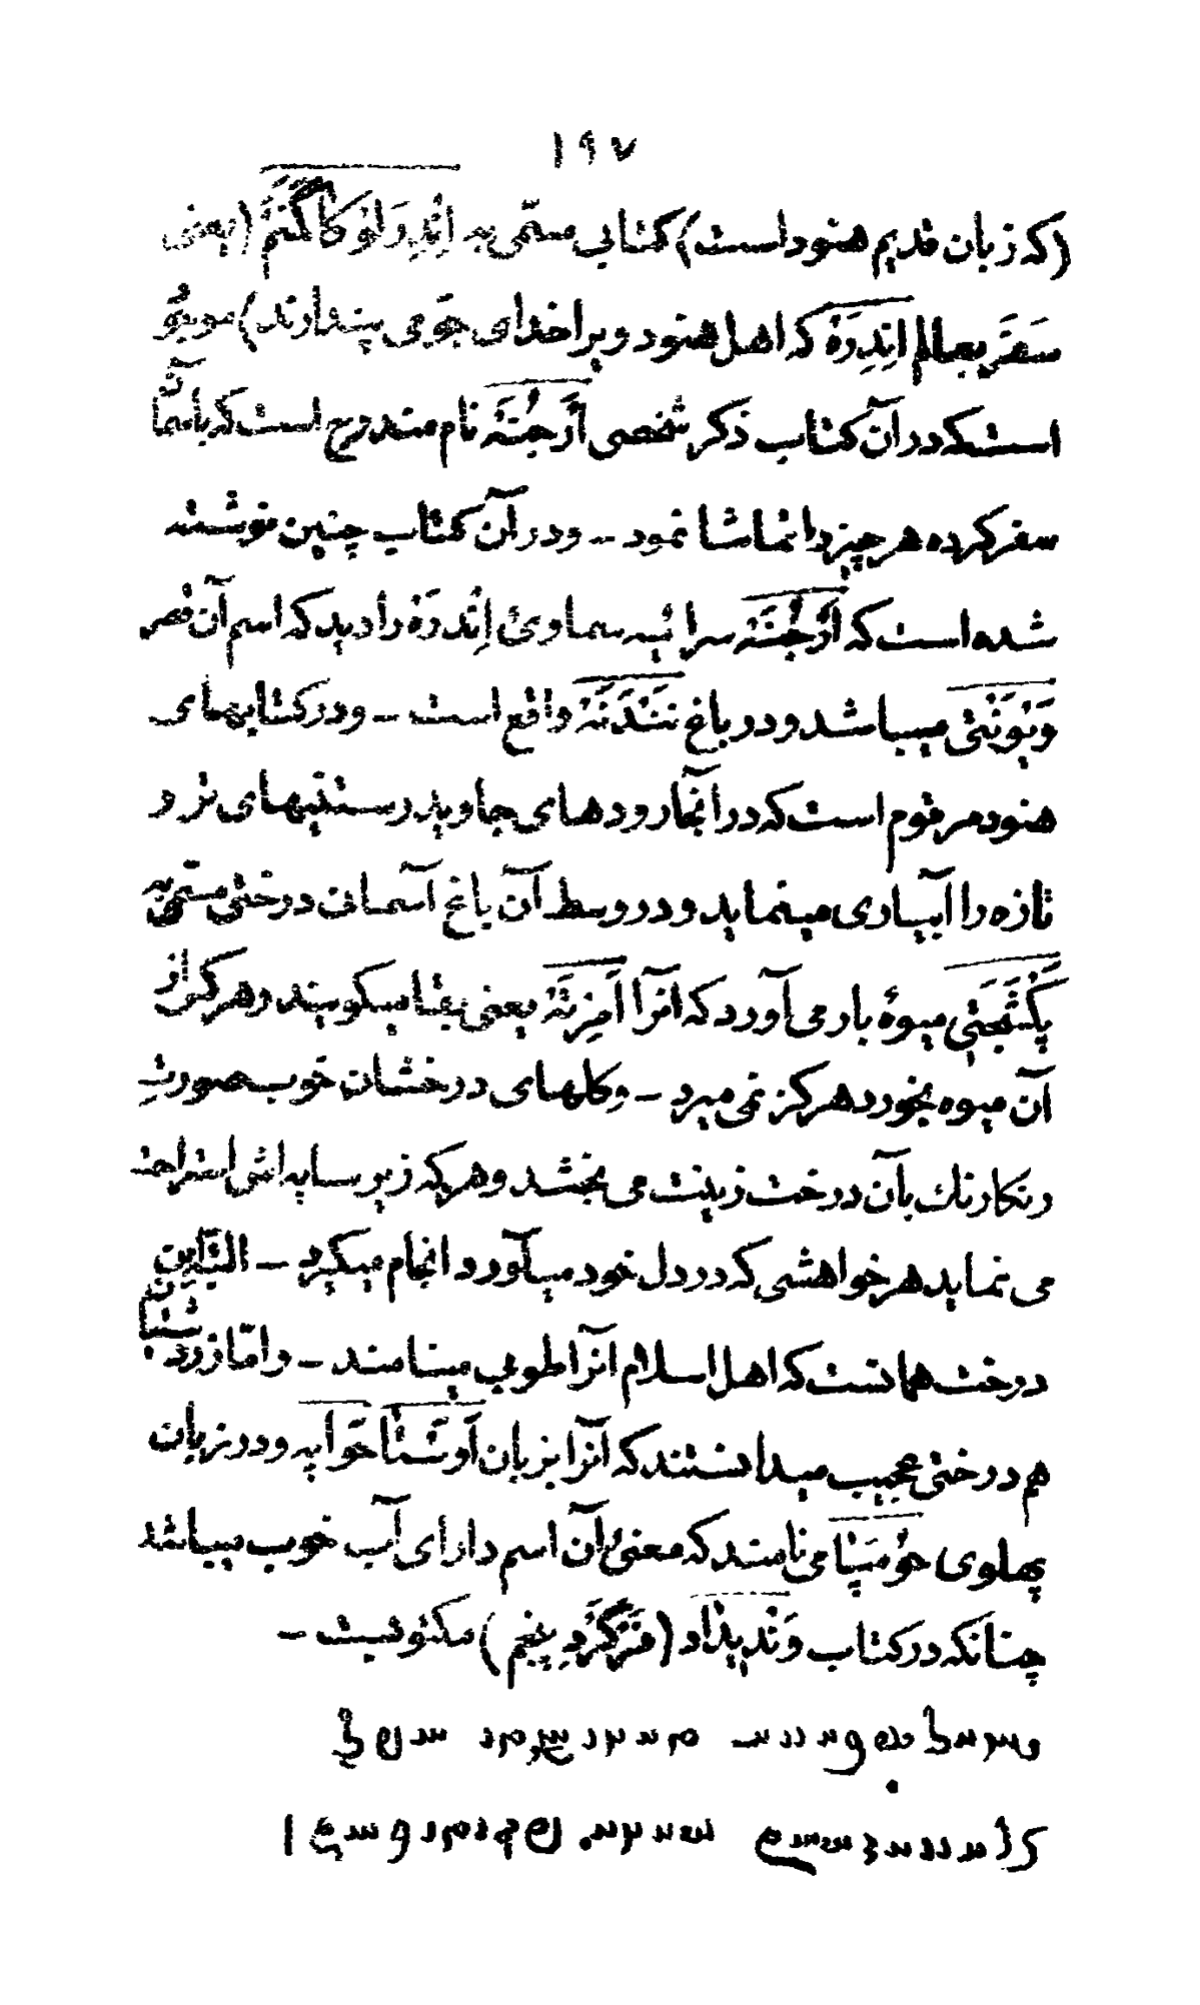 ۱۹۷
(که زبان قدیم هنود است) کتابی مسمّی به اِنْدِرَلوُکاگَمَنَم (یعنی
سَفَر بعالم اِنْدِرَهْ که اهل هنود ویرا خدای جوّ می پندارند) موجود
است که در آن کتاب ذکر شخصی اَرْجُنَهْ نام مندرج است که بآسمان
سفر کرده هر چیز را تماشا نمود – و در آن کتاب چنین نوشته
شده است که اَرْجُنَهْ سرائیه سماوئ اِنْدرَهْ را دید که اسم آن قصر
وَیوَنْتی میباشد و در باغ نَنْدَنَهْ واقع است – و در کتابهای
هنود مرقوم است که در آنجا رودهای جاوید رستنیهای تر و
تازه را آبیاری مینماید و در وسط آن باغ آسمانی درختی مسمّی به
پَکْشَجَتی میوۀ بار می آورد که آنرا اَمِرتَهْ یعنی بقا میگویند و هر که از
آن میوه بخورد هرگز نمی میرد – و گلهای درخشان خوب صورتِ
رنگارنگ بآن درخت زینت می بخشد و هر که زیر سایه اش استراحت
می نماید هر خواهشی که در دل خود میآورد انجام میگیرد – البتّه این
درخت همانست که اهل اسلام آنرا طوبی مینامند – و امّا زردشتیان
هم درختی عجیب میدانستند که آنرا بزبان اَوِسْتا حَوّاپه و در زبان
پهلوی حوُمَپنا می نامند که معنئ آن اسم دارای آب خوب میباشد
چنانکه در کتاب وَنْدیداد (فَرْگَرْدِ پنجم) مکتوبست –